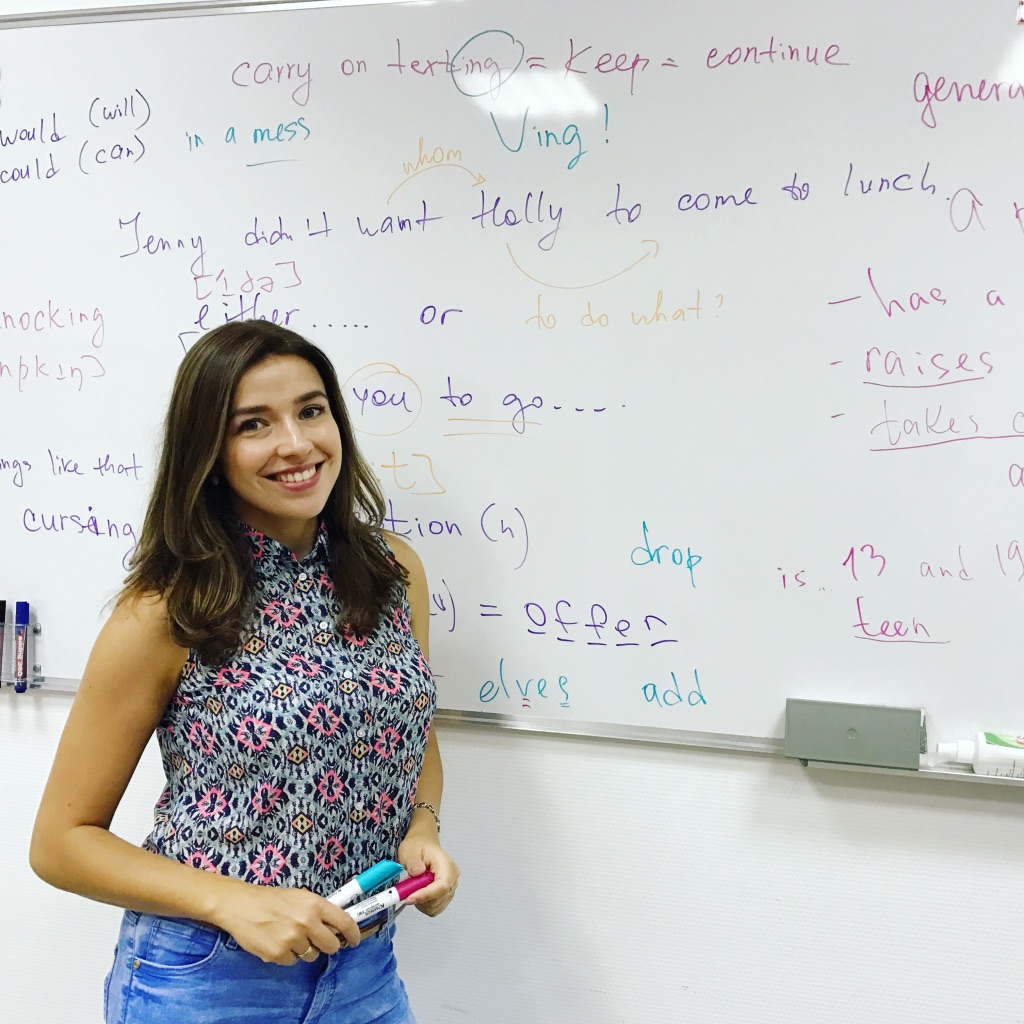 carry on texting = keep = continue
genera
would (will)
could (can)
in a mess
Ving!
whom
Jenny didn't want Holly to come to lunch.
a
either ..... or
to do what?
nocking
- has a
- raises
- takes
you to go ....
ngs like that
cursing
tion (n)
drop
is .. 13 and 19
teen
(v) = offer
elves
add